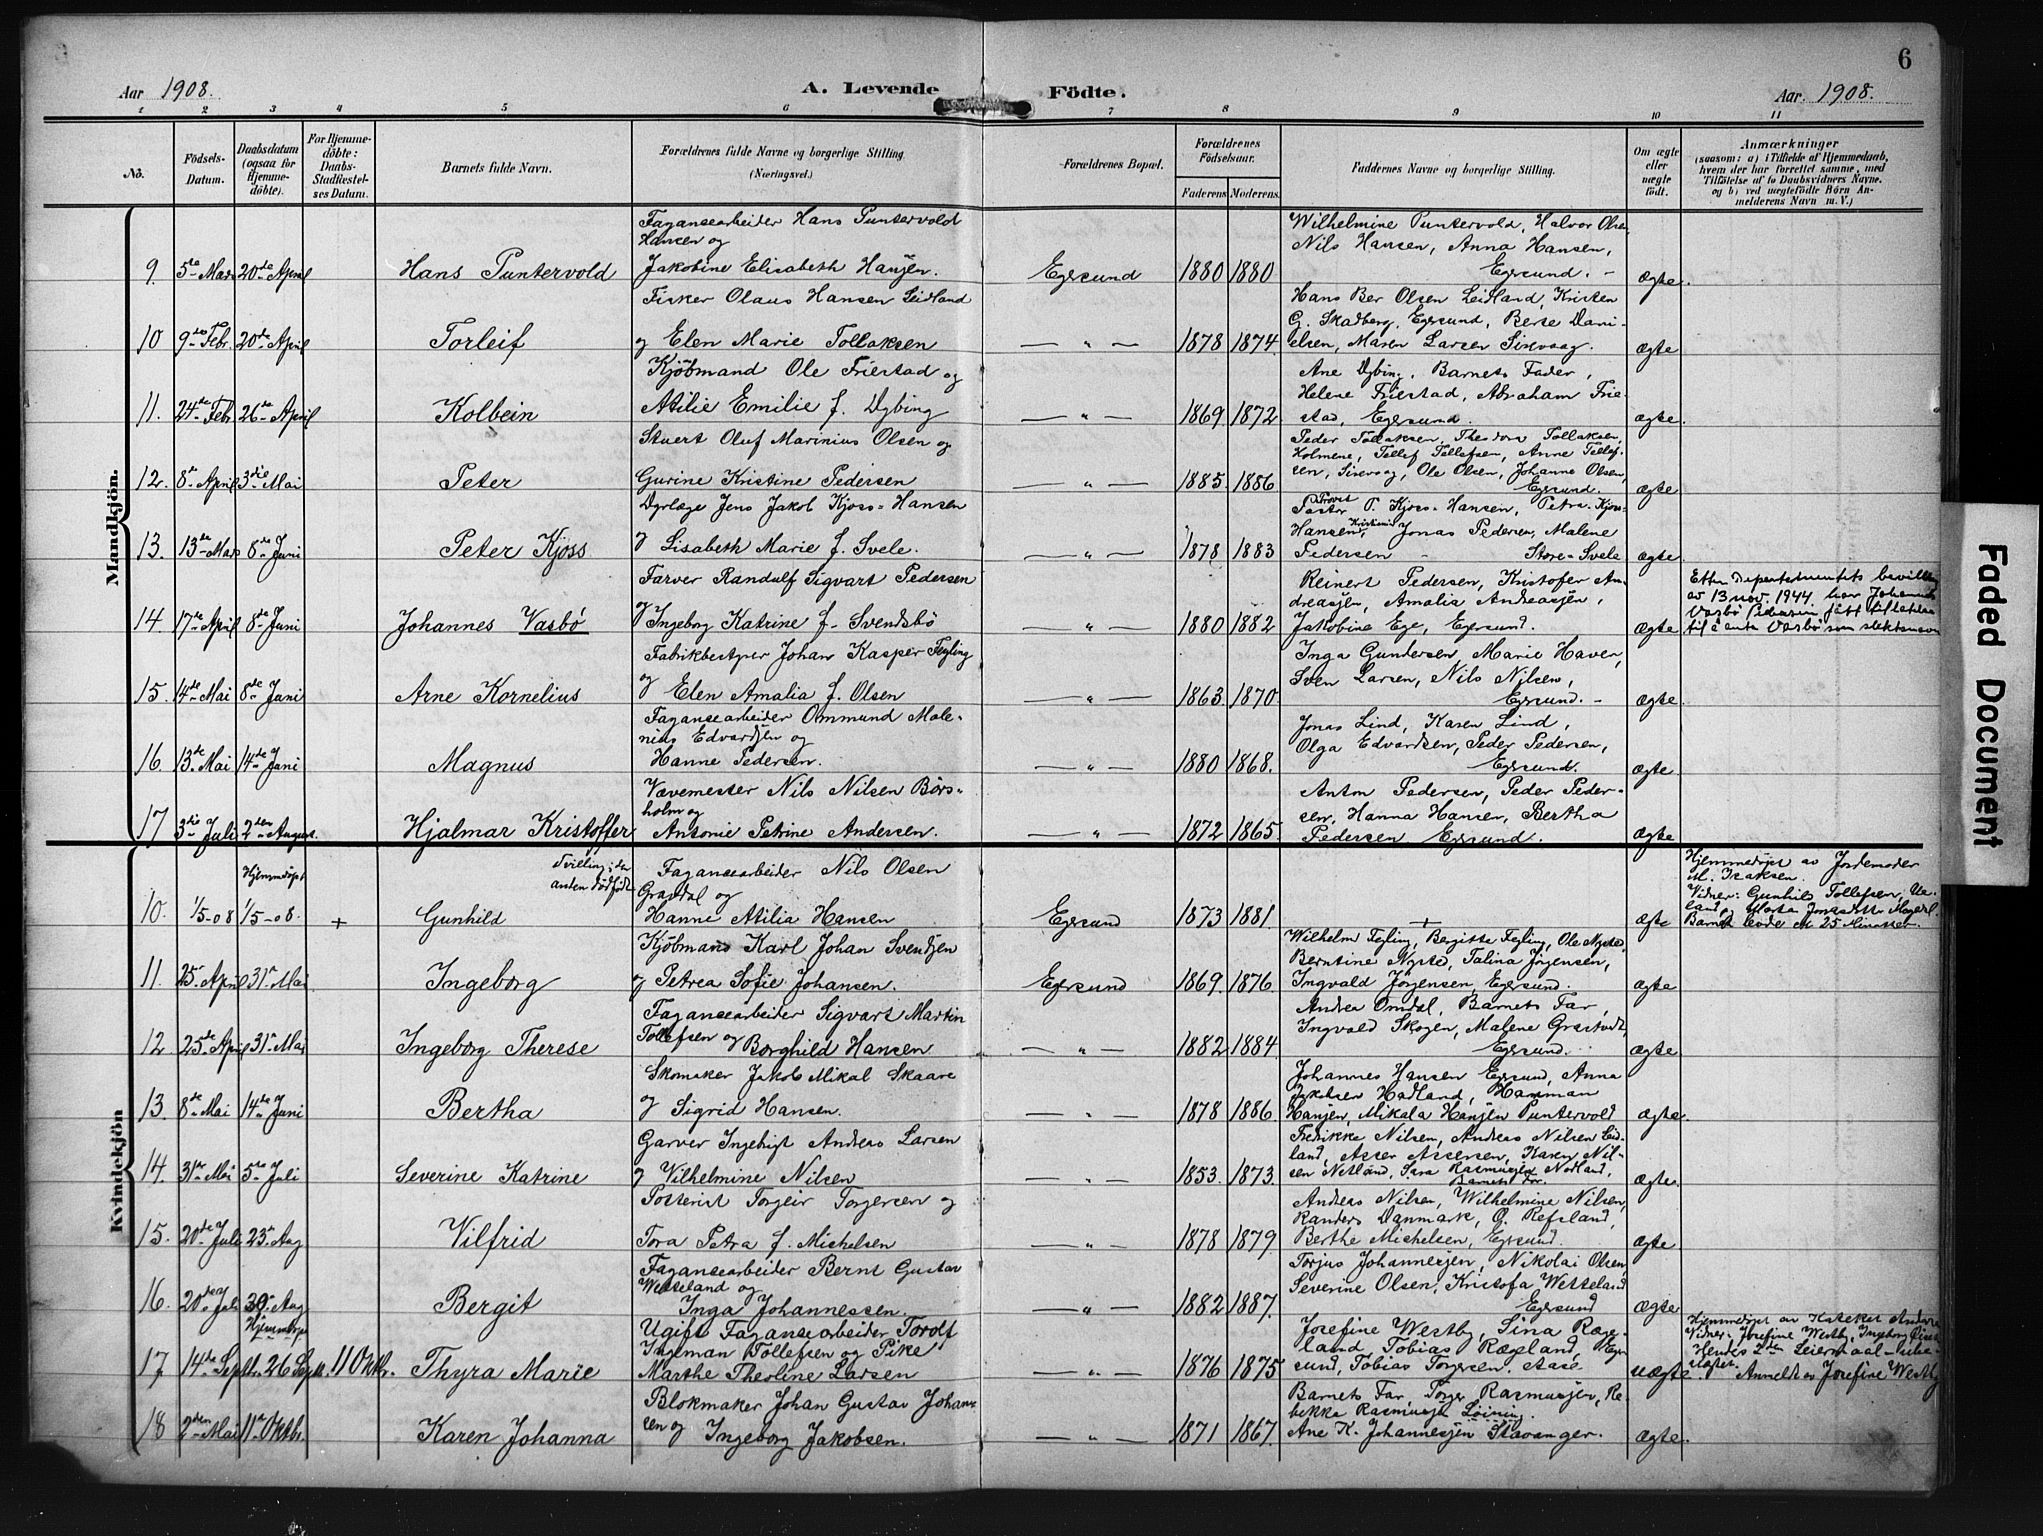 6
Aar 1908.
A. Levende Födte.
Aar. 1908.
1 2 3 4 5 6 7 8 9 10 11
No.
Födsels-Datum.
Daabsdatum (ogsaa for Hjemmedöbte).
For Hjemmedöbte: Daabs-Stadfæstelses Datum.
Barnets fulde Navn.
Forældrenes fulde Navne og borgerlige Stilling. (Næringsvei.)
Forældrenes Bopæl.
Forældrenes Födselsaar.
Faderens. Moderens.
Faddernes Navne og borgerlige Stilling.
Om ægte eller uægte födt.
Anmærkninger
(saasom: a) i Tilfælde af Hjemmedaab,
hvem der har forrettet samme, med
Tilföielse af to Daabsvidners Navne,
og b) ved uægtefödte Börn An-
melderens Navn m. V.)
Mandkjön.
Fayansearbeider Hans Puntervold
Hansen og
9. 5te Mars 20de April Hans Puntervold Jakobine Elisabeth Hansen. Egersund 1880 1880 ægte.
Wilhelmine Puntervold, Halvor Olsen
Nils Hansen, Anna Hansen,
Egersund.
Fisker Olaus Hansen Leidland
10 9de Febr. 20de April Torleif og Elen Marie Tollaksen — " — 1878 1874. ægte
Hans Ber Olsen Leidland, Kristen
G. Skadberg, Egersund, Berte Dani-
elsen, Maren Larsen Sirevaag.
Kjöbmand Ole Friestad og
11. 24de Febr. 26de April Kolbein Atilie Emilie f. Dybing — " — 1869 1872 ægte.
Ane Dybing, Barnets Fader,
Helene Friestad, Abraham Frie-
stad, Egersund.
Stuert Oluf Marinius Olsen og
12. 8de April 3die Mai Peter Gurine Kristine Pedersen — " — 1885 1886 ægte
Peder Tollaksen, Theodora Tollaksen,
Holmene, Tellef Tellefsen, Anne Tellef-
sen, Sirevaag, Ole Olsen, Johanne Olsen,
Egersund.
Dyrlæge Jens Jakob Kjoss-Hansen
13. 13de Mars 8de Juni Peter Kjoss og Lisabeth Marie f. Svele. — " — 1878 1883 ægte.
Provst
Pastor P. Kjoss-Hansen, Petra Kjoss-
Hansen, Kristiania, Jonas Pedersen, Malene
Pedersen - Store-Svele
Farver Randulf Sigvart Pedersen
14. 17de April 8de Juni Johannes Vasbö og Ingeborg Katrine f. Svendsbö — " — 1880 1882 ægte
Reinert Pedersen, Kristofer An-
dreasjen, Amalia Andreasjen,
Jakobine Ege, Egersund.
Etter Departementets bevilling
av 13 nov. 1944 har Johannes
Vasbö Pedersen fått tillatelse
til å anta Vasbö som slektsnavn
Fabrikbestyrer Johan Kasper Feyling
15. 14de Mai 8de Juni Arne Kornelius og Elen Amalia f. Olsen — " — 1863 1870 ægte.
Inga Gundersen Marie Haver,
Sven Larsen, Nils Nilsen,
Egersund.
Fayansearbeider Ommund Male-
nius Edvardsen og
16. 13de Mai 14de Juni Magnus Hanne Pedersen. — " — 1880 1868. ægte.
Jonas Lind, Karen Lind,
Olga Edvardsen, Peder Pedersen,
Egersund.
Vævemester Nils Nilsen Börs-
holm og
17 3die Juli 2den August. Hjalmar Kristoffer Antonie Petrine Andersen. — " — 1872 1865. ægte
Anton Pedersen, Peder Peder-
sen, Hanna Hansen, Bertha
Pedersen Egersund.
Kvindekjön
Hjemmedöpt
Tvilling; den
anden dödfödt
Fayansearbeider Nils Olsen
Gravdal og
10. 1/5-08 1/5-08. + Gunhild Hanne Atilia Hansen Egersund 1873 1881. + ægte
Hjemmedöpt av Jordemoder
M. Isaksen.
Vidner: Gunhild Tollefsen, Ue-
land,
Barnet levde 25 Minutter.
Kjöbmand Karl Johan Svendsen
11. 25 April 31 Mai Ingeborg og Petrea Sofie Johansen. Egersund 1869. 1876. ægte
Wilhelm Feyling, Bergitte Feyling, Ole Nysted,
Berntine Nysted, Talina Jörgensen,
Ingvald Jörgensen, Egersund.
Fayansearbeider Sigvart Martin
Tollefsen og
12 25de April 31 Mai Ingeborg Therese Borghild Hansen — " — 1882 1884. ægte
Andrea Omdal, Barnets Far,
Ingvald Skogen, Malene
Egersund.
Skomaker Jakob Mikal Skaare
13. 8de Mai 14de Juni Bertha og Sigrid Hansen. — " — 1878 1886. ægte.
Johannes Hansen Egersund, Anna
Jakobsen Hadland, Hamman
Hansen, Mikala Hansen Puntervold
Garver Ingebrigt Andreas Larsen
14. 31te Mai 5te Juli Severine Katrine og Wilhelmine Nilsen — " — 1853. 1873. ægte.
Fredrikke Nilsen, Andreas Nilsen Leid-
land, Asser Assersen, Karen Nil-
sen Netland, Sara Rasmussen Nodland,
Barnets Far.
Posterist Torgeir Torgersen og
15. 20de Juli 23 Aug Vilfrid Tora Petra f. Michelsen — " — 1878 1879. ægte
Andreas Nilsen, Wilhelmine Nilsen,
Randers Danmark, G. Refsland,
Berthe Michelsen, Egersund.
Fayansearbeider Bernt Gustav
Wetteland og
16. 20de Juli 30 Aug Bergit Inga Johannessen. — " — 1882 1887. ægte
Torjus Johannesjen, Nikolai Olsen
Severine Olsen, Kristofa Wetteland
Egersund
Hjemmedöpt
Ugift Fayansearbeider Tordt
Ingeman Tollefsen og Pike
17. 14de Septbr. 26 Septbr. 11 Oktbr. Thyra Marie Marthe Theoline Larsen — " — 1876 1875 uægte.
Josefine Westby, Sina Ræge-
land Tobias Rægland, Eger-
sund, Tobias Torgersen, Aase
Hjemmedöpt av Kateket
Vidner: Josefine Westby, Ingeborg
Hendes 2den Leiermaal
Anmeldt av Josefine Westby
Blokmaker Johan Gustav Johan-
sen og
18 2den Mai 11te Oktbr. Karen Johanna Ingeborg Jakobsen. — " — 1871 1867. ægte.
Barnets Far Torger Rasmusjen, Re-
bekka Rasmusjen
Ane K. Johannesjen Stavanger.
Faded Document